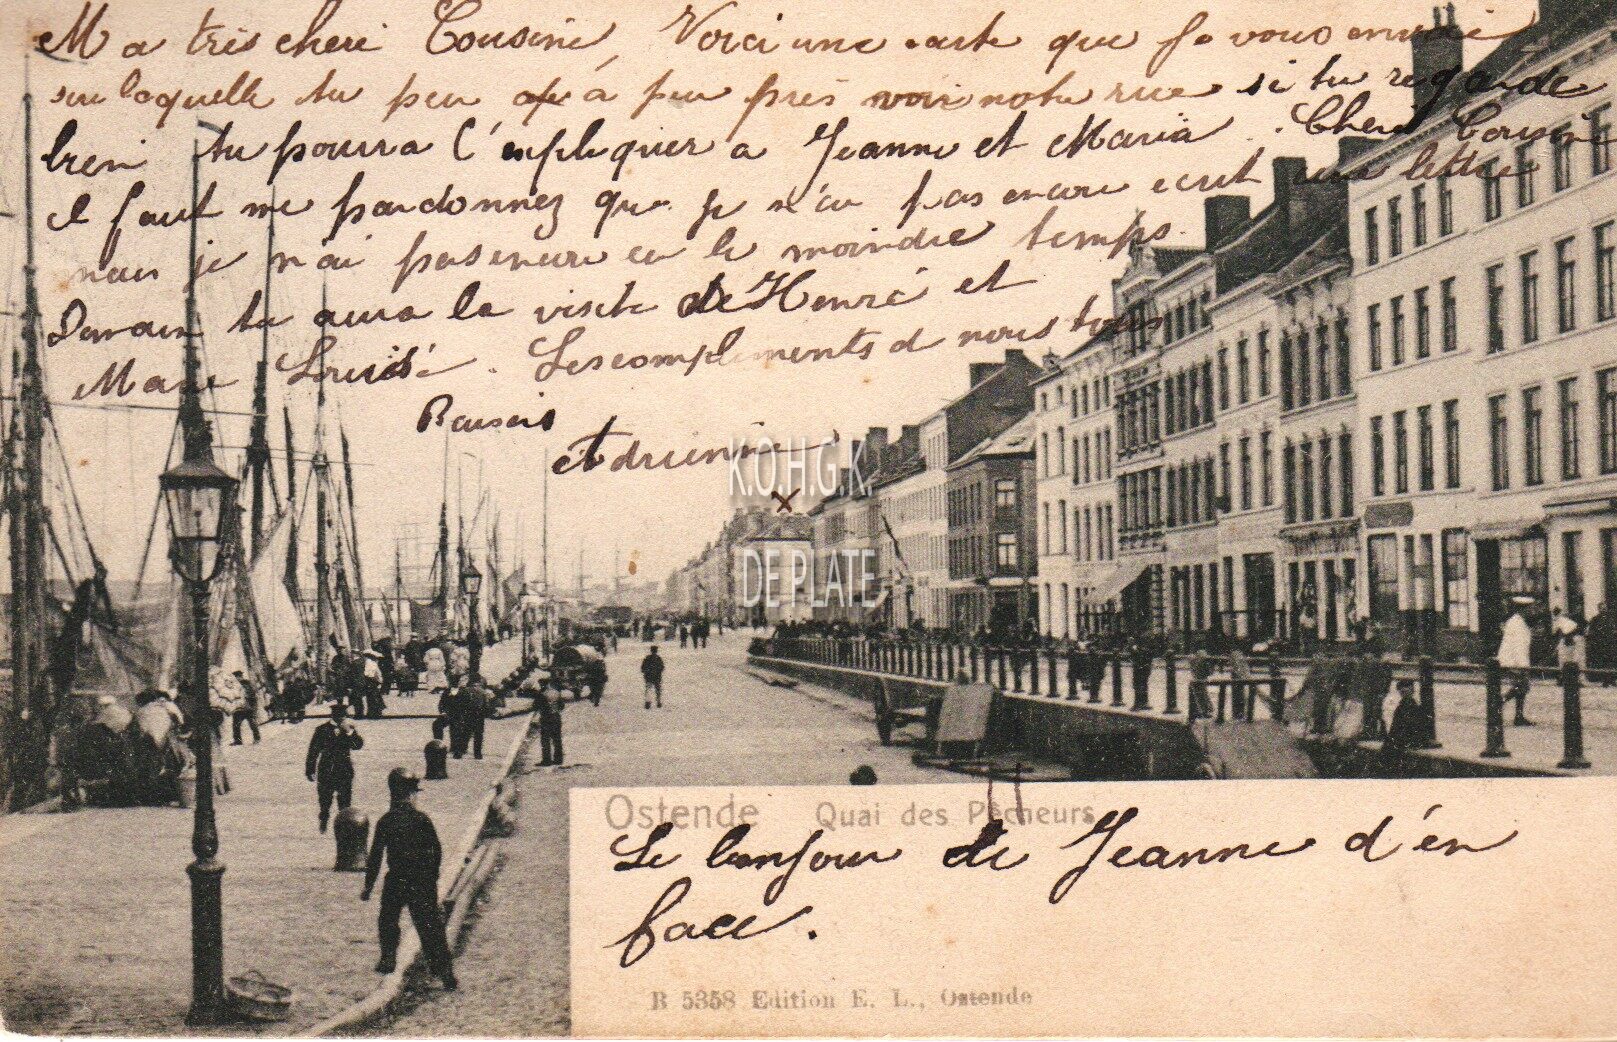 Ma très cheri Cousine, Voici une carte que je vous envoie
sur laquelle tu peu à peu près voir notre rue si tu regarde
bien tu poura l'expliquer a Jeanne et Maria. Cheri Cousine
il faut me pardonnez que je n'ai pas encore ecrit une lettre
mais je n'ai pas encore eu le moindre temps.
Demain tu aura la visite de Henri et
Marie Louise. Les compliments de nous tous
Baisers
Adrienne
K.O.H.G.K.
x
DE PLATE
Ostende Quai des Pêcheurs
Le bonjour de Jeanne d'en
face.
B 5358 Edition E. L., Ostende